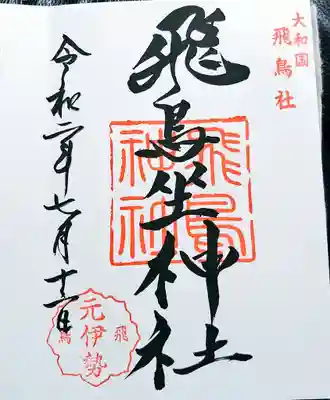 大和国
飛鳥社
飛鳥坐神社
飛鳥
神社
令和二年七月十二日
元伊勢
飛鳥